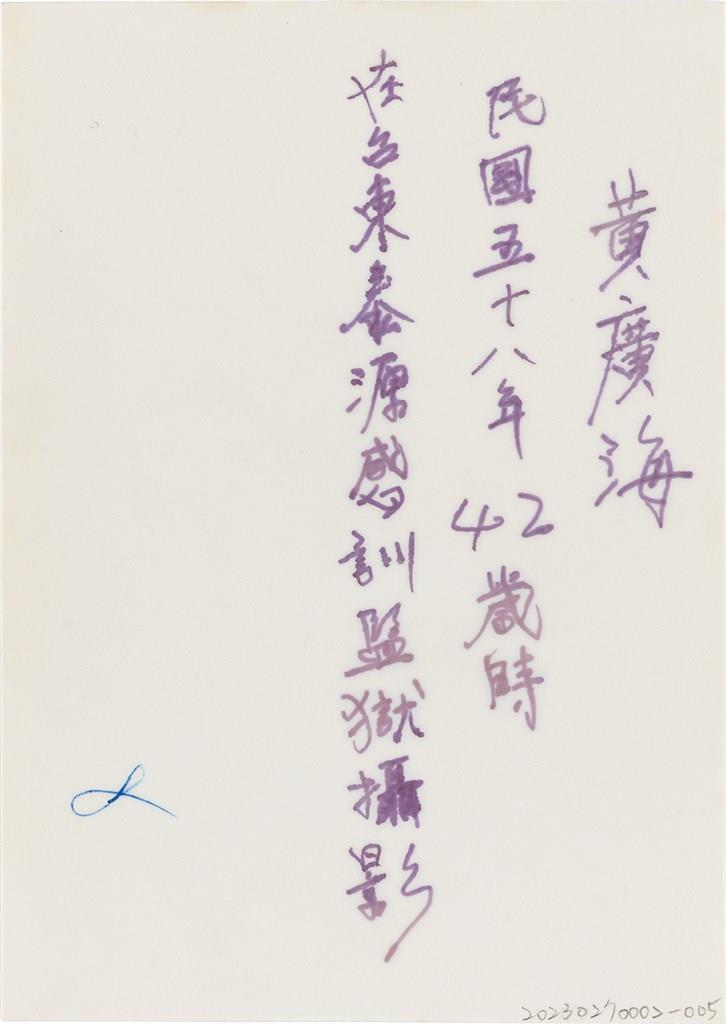 黃廣海
民國五十八年42歲時
在台東泰源感訓監獄攝影
20230270002-005